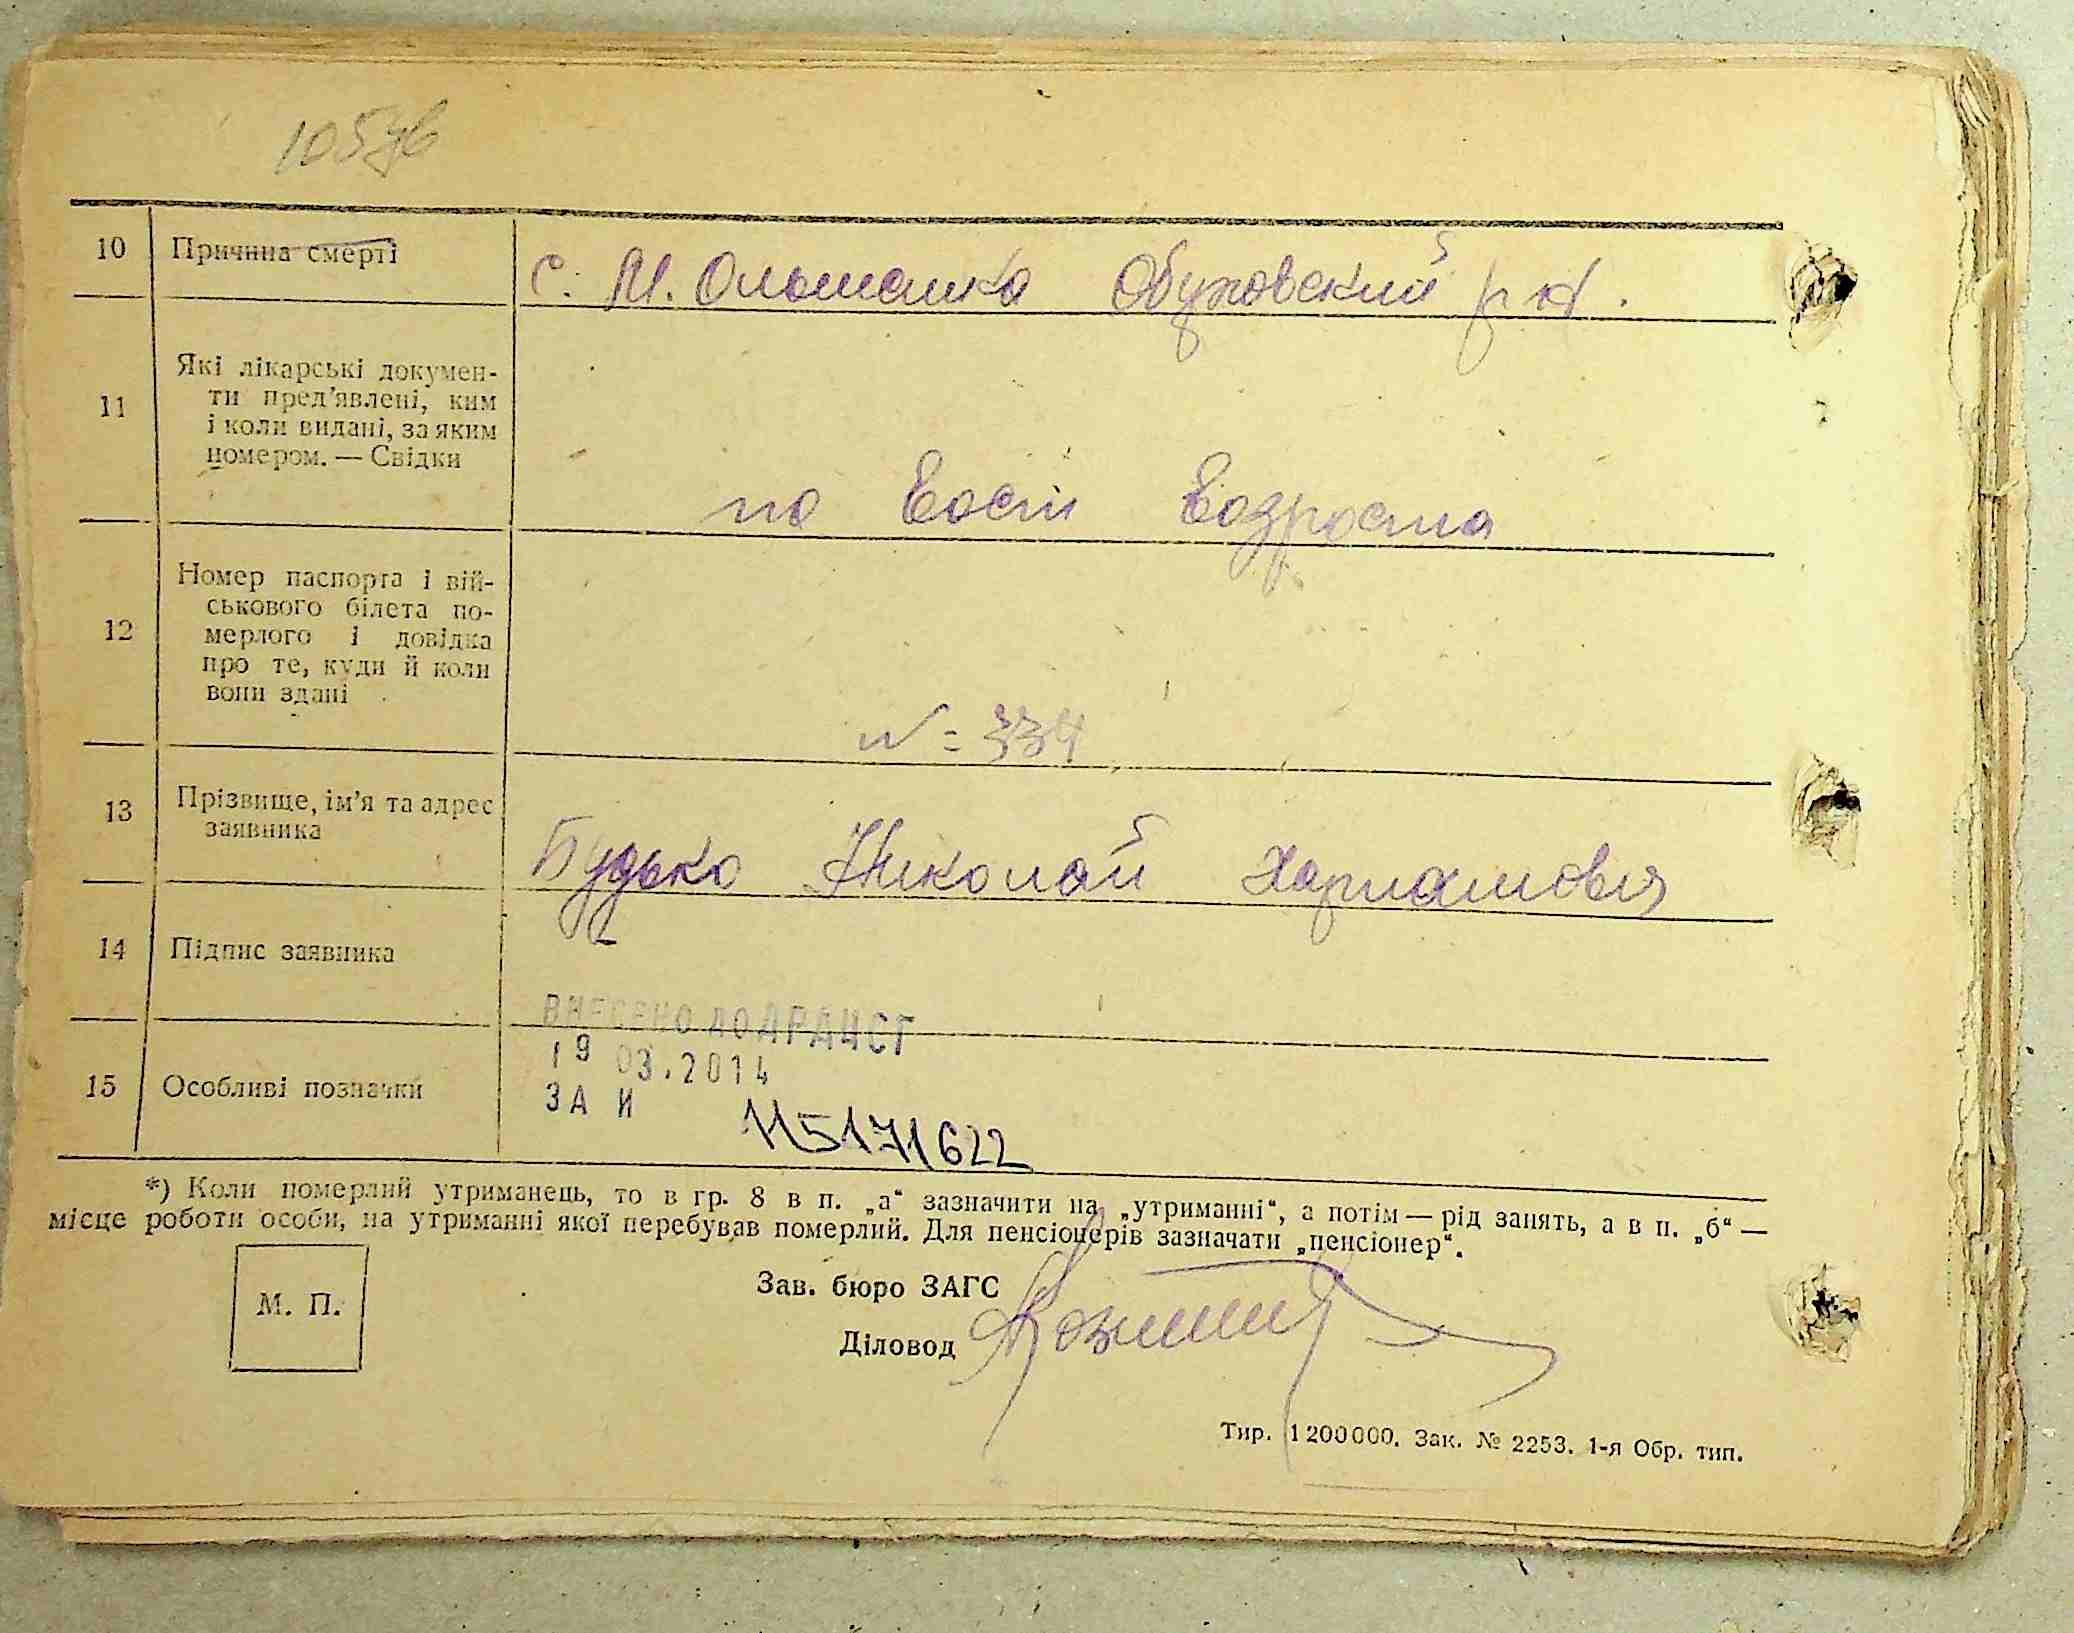 10
Причина смерті
с. М. Ольшанка Обуховский р-н.
11
Які лікарські докумен-
ти пред’явлені, ким
і коли видані, за яким
номером. — Свідки
по возроста
12
Номер паспорта і вій-
ськового білета по-
мерлого і довідка
про те, куди й коли
вони здані
№ = 334
13
Прізвище, ім’я та адрес
заявника
Будько Николай
14
Підпис заявника
ВНЕСЕНО ДО ДРАЦСГ
19 03.2014
ЗА И
115171622
15
Особливі позначки
*) Коли померлий утриманець, то в гр. 8 в п. „а“ зазначити на „утриманні“, а потім — рід занять, а в п. „б“ —
місце роботи особи, на утриманні якої перебував померлий. Для пенсіонерів зазначати „пенсіонер“.
М. П.
Зав. бюро ЗАГС
Діловод
Тир. 1 200 000. Зак. № 2253. 1-я Обр. тип.